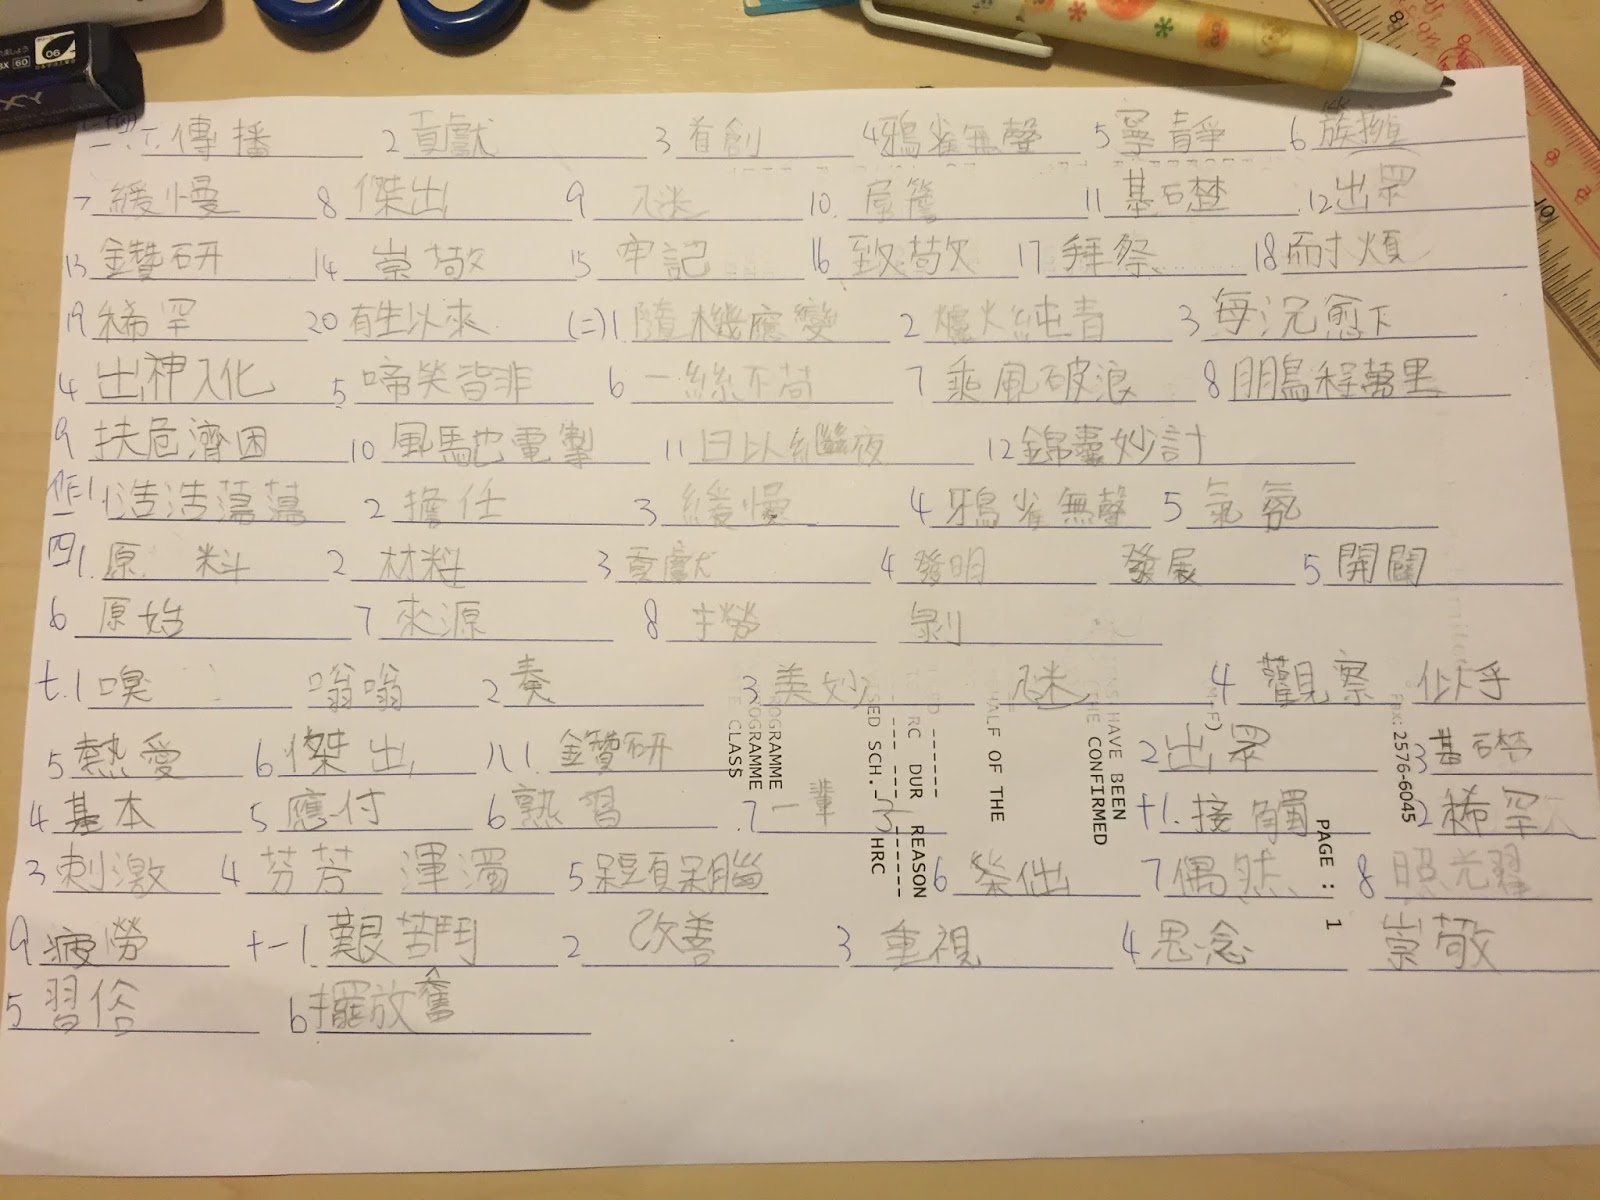 傳播 2 貢獻 3 首創 4 鴉雀無聲 5 寧靜 6 簇擁
7 緩慢 8 傑出 9 謎 10. 屋簷 11 基礎 12 出眾
13 鑽研 14 崇敬 15 牢記 16 致敬 17 拜祭 18 耐煩
19 稀罕 20 有生以來 (二) 1. 隨機應變 2 爐火純青 3 每況愈下
4 出神入化 5 啼笑皆非 6 一絲不苟 7 乘風破浪 8 鵬程萬里
9 扶危濟困 10 風馳電掣 11 日以繼夜 12 錦囊妙計
1 浩浩蕩蕩 2 擔任 3 緩慢 4 鴉雀無聲 5 氣氛
四 1. 原料 2 材料 3 貢獻 4 發明 發展 5 開闢
6 原始 7 來源 8 剝
七.1 嗅 嗡嗡 2 奏 3 美妙 謎 4 觀察 似乎
5 熱愛 6 傑出 八1. 鑽研 2 出眾 3 基礎
4 基本 5 應付 6 熟習 7 一輩 十1. 接觸 2 稀罕
3 刺激 4 芬芳 渾濁 5 呆頭呆腦 6 傑出 7 偶然 8 照光耀
9 疲勞 十一1. 艱苦鬥 2 改善 3 重視 4 思念 崇敬
5 習俗 6 擺放 奮
PROGRAMME CLASS
HALF OF THE
HAVE BEEN CONFIRMED
DUR REASON
SCH. HRC
FAX: 2576-6045
PAGE : 1
06
60